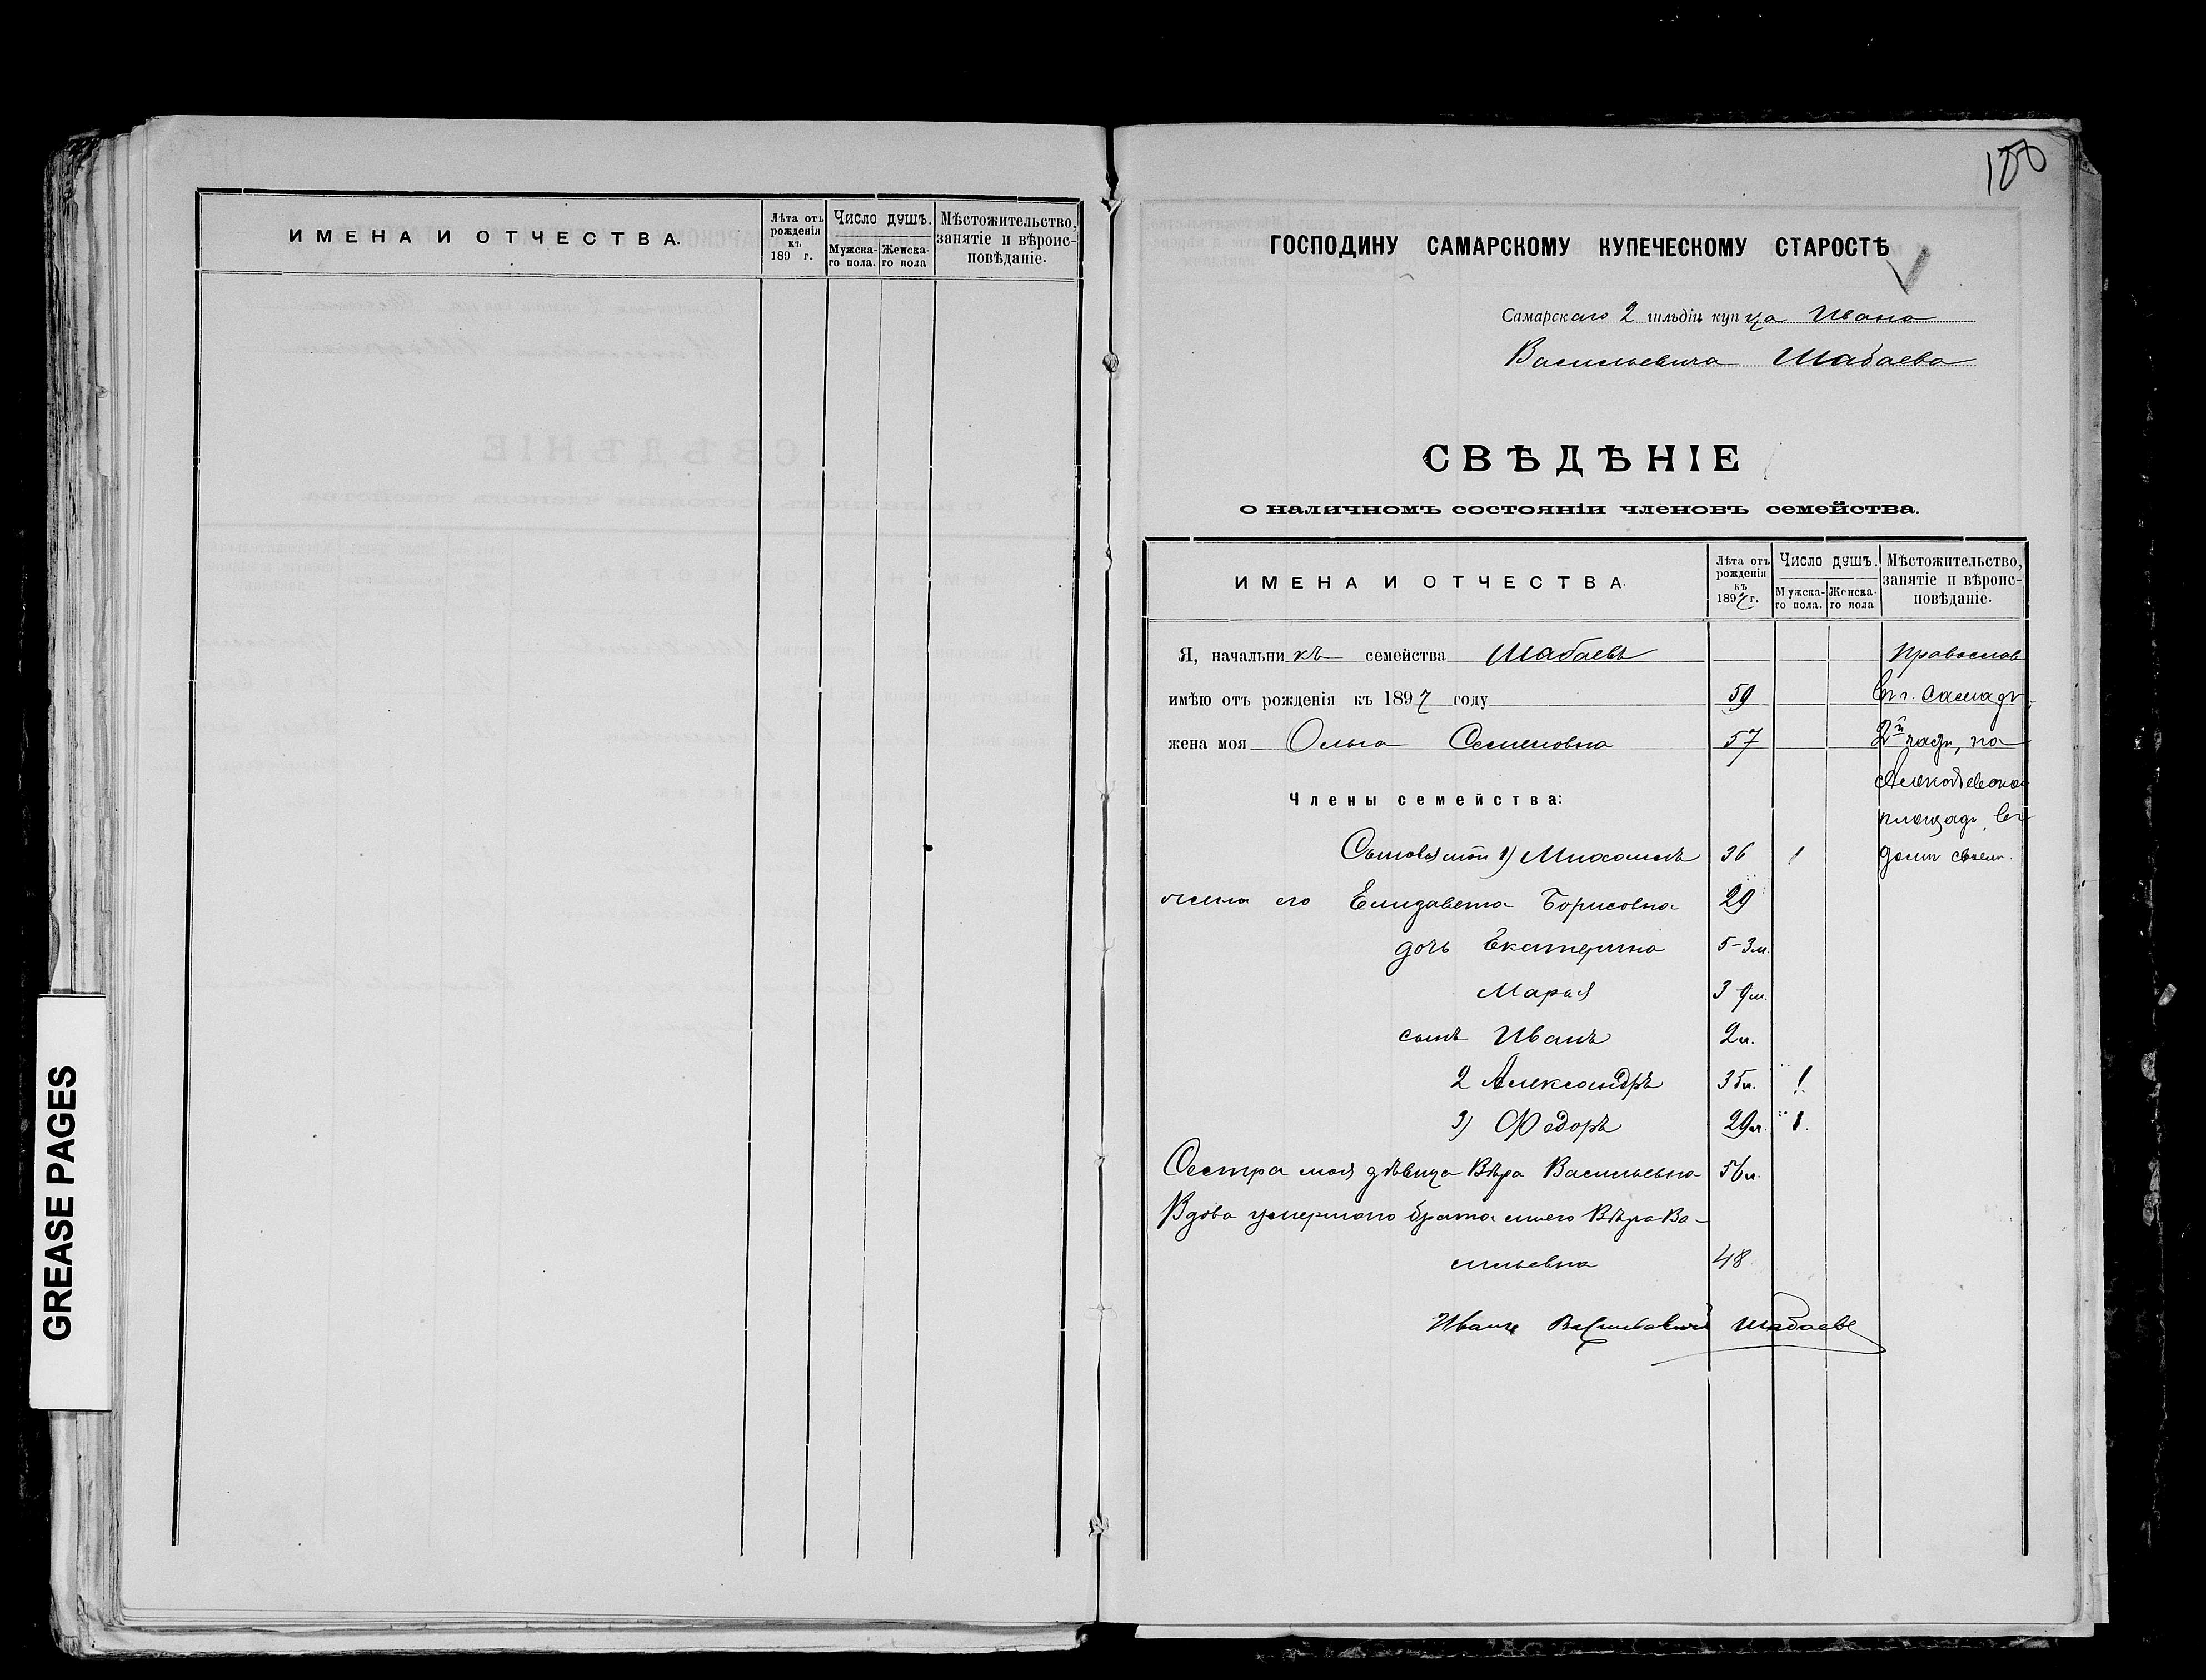 ИМЕНА И ОТЧЕСТВА.
Лѣта отъ рожденія къ 189 г.
Число душъ.
Мужска-го пола.
Женска-го пола
Мѣстожительство, занятіе и вѣроис-повѣданіе.
GREASE PAGES
100
ГОСПОДИНУ САМАРСКОМУ КУПЕЧЕСКОМУ СТАРОСТѢ
Самарскаго 2 гильдіи купца Ивана
Васильевича Шабаева
СВѢДѢНІЕ
о наличномъ состояніи членовъ семейства.
ИМЕНА И ОТЧЕСТВА.
Лѣта отъ рожденія къ 1897 г.
Число душъ.
Мужска-го пола.
Женска-го пола
Мѣстожительство, занятіе и вѣроис-повѣданіе.
Я, начальникъ семейства Шабаевъ Православ
имѣю отъ рожденія къ 1897 году 59 въ г. Самарѣ
жена моя Ольга Семеновна 57 2й части, на
Алексѣевской
Члены семейства:
площади въ
Сыновья мои 1) Михаилъ 36 1 домѣ своемъ.
жена его Елизавета Борисовна 29
дочь Екатерина 5-3м.
Марья 3 9м.
сынъ Иванъ 2м.
2 Александръ 35л. 1
3) Федоръ 29л. 1.
Сестра моя дѣвица Вѣра Васильевна 56л.
Вдова умершаго брата моего Вѣра Ва-
сильевна 48
Иванъ Васильевичъ Шабаевъ